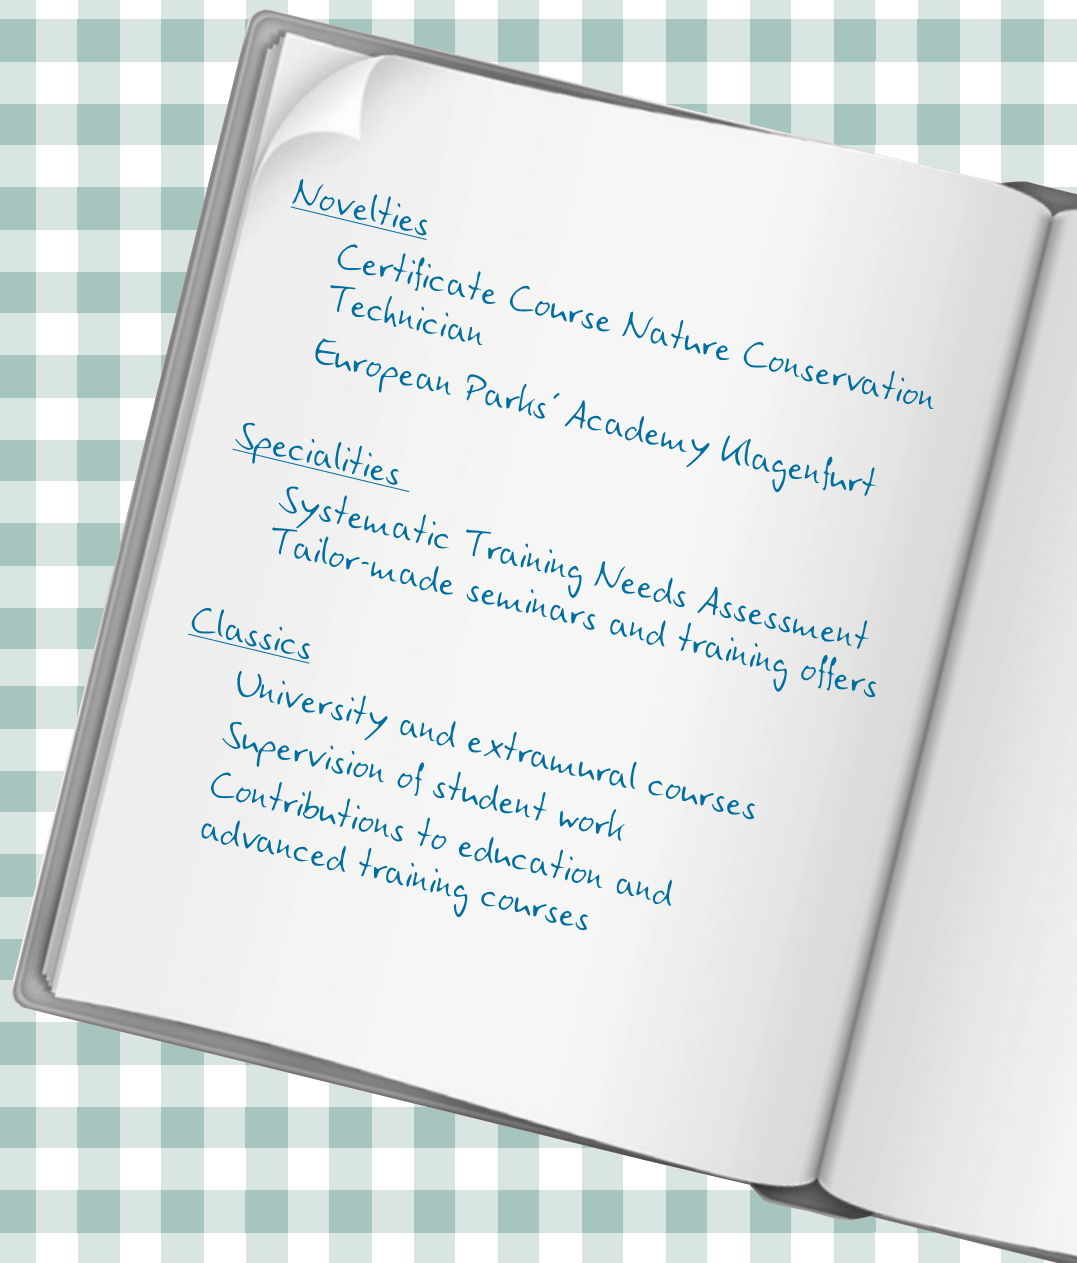 Novelties
Certificate Course Nature Conservation
Technician
European Parks´ Academy Klagenfurt
Specialities
Systematic Training Needs Assessment
Tailor-made seminars and training offers
Classics
University and extramural courses
Supervision of student work
Contributions to education and
advanced training courses